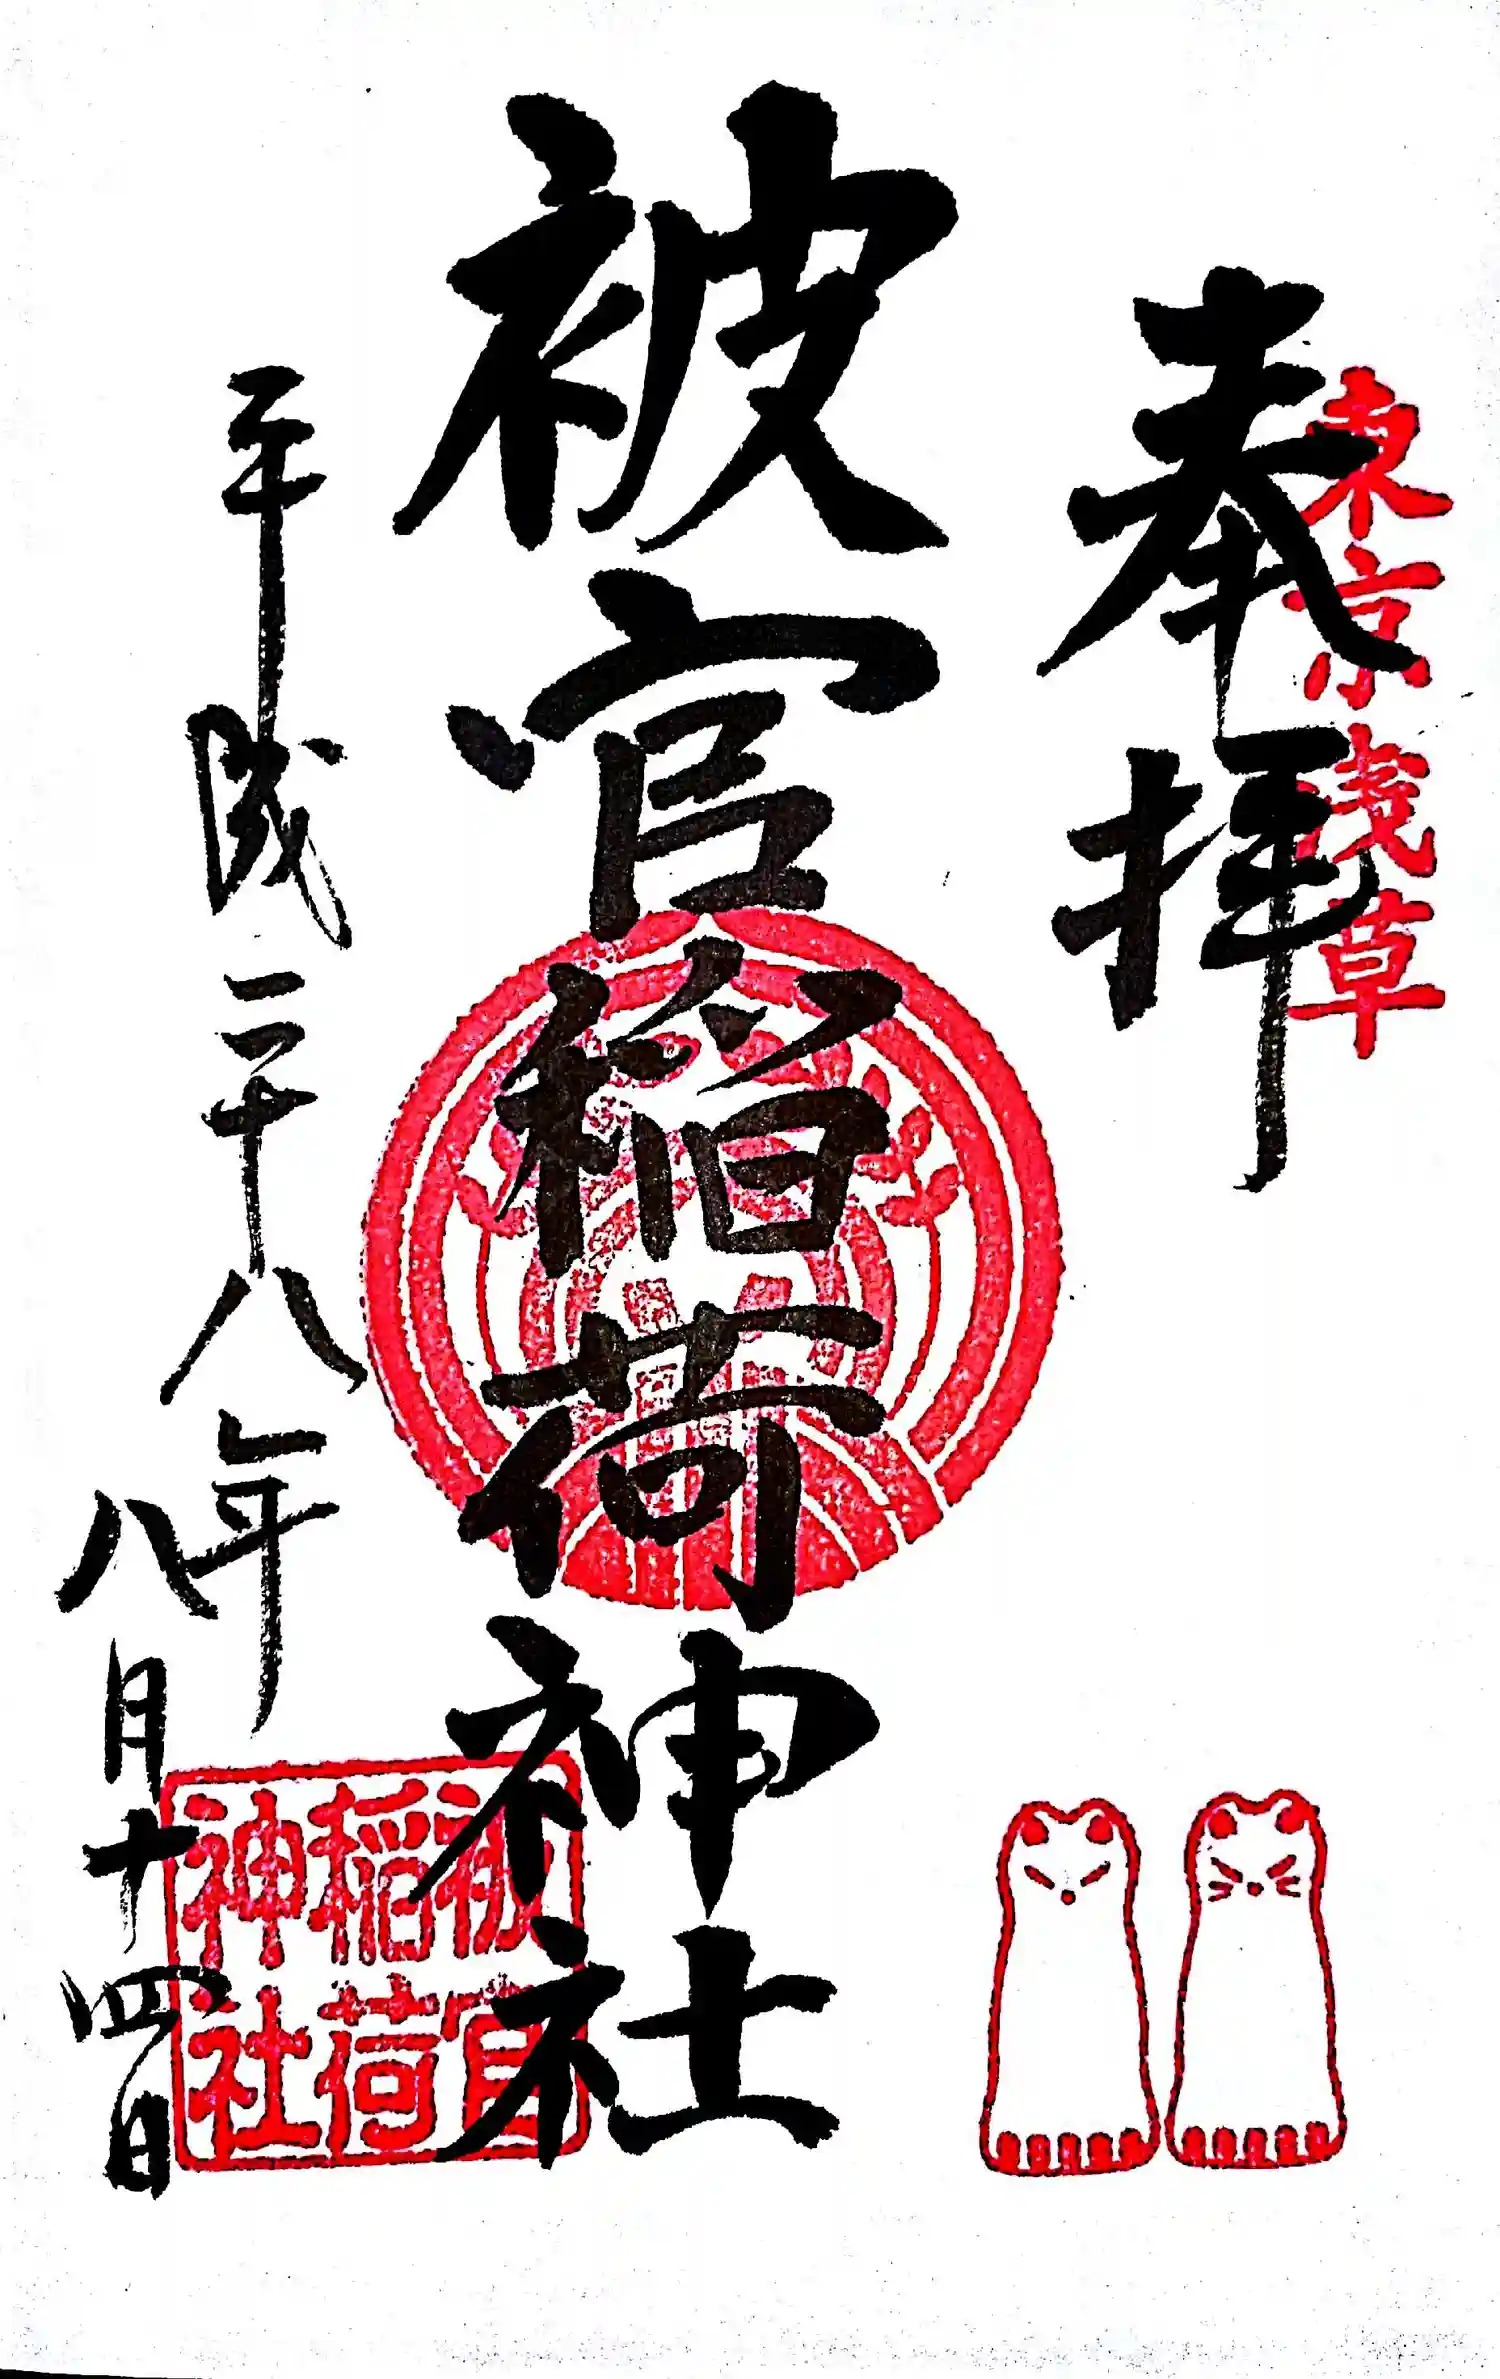 奉拝
東京浅草
被官稲荷神社
平成二十八年
八月十四日
被官
稲荷
神社